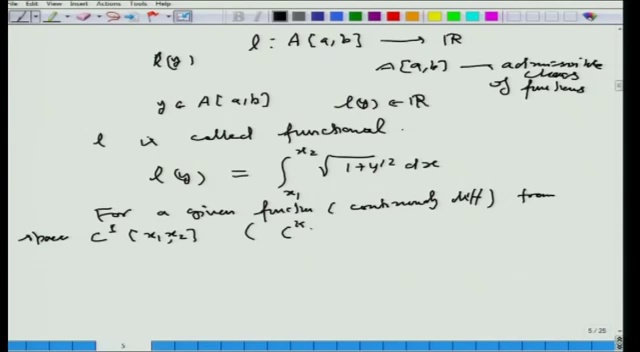 File Edit View Insert Actions Tools Help
l : A[a,b] → ℝ
l(y)
A[a,b] — admissible class of functions
y ∈ A[a,b] l(y) ∈ ℝ
l is called functional.
l(y) = ∫_{x₁}^{x₂} √(1+y'²) dx
For a given function (continuously diff) from
space C¹[x₁,x₂] (
5 / 25
5